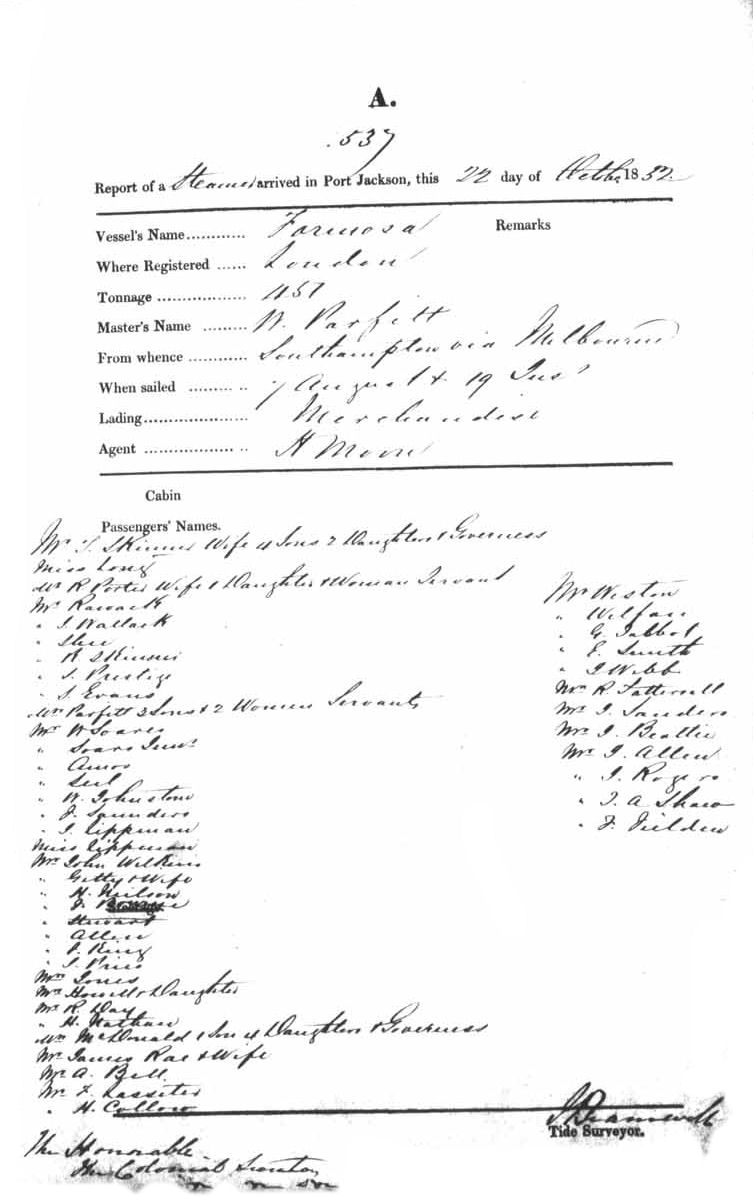 A.
537
Report of a Steamer arrived in Port Jackson, this 22 day of Octbr 1852.
Vessel's Name............ Formosa Remarks
Where Registered ...... London
Tonnage .................. 457
Master's Name ......... W. Parfitt
From whence ............ Southampton via Melbourne
When sailed ......... .. 7 August & 19 Inst
Lading..................... Merchandise
Agent .................. .. H Moore
Cabin
Passengers' Names.
Mr T. Skinner Wife 4 Sons 2 Daughters & Governess
Miss Long
Mr R Porter Wife 1 Daughter & Woman Servant
Mr
" J. Wallack
"
" R Skinner
" S. Prestige
" S. Evans
Mrs Parfitt 3 Sons & 2 Women Servants
Mr W Soares
" Soares Junr
" Amos
"
" W. Johnstone
" J. Saunders
" I. Lippman
Miss Lippman
Mr John Wilkins
" Getty & Wife
" H. Neilson
" J.
" Stewart
" Allen
" J. King
" S. Price
Mrs Jones
Mrs Howell & Daughter
Mr R. Day
" H. Nathan
Mrs McDonald 1 Son 4 Daughters & Governess
Mr James Rae & Wife
Mr A. Bell
Mr F. Lasseter
" H. Collow
Mr Weston
"
" G. Talbot
" E. Smith
" J Webb
Mr R. Tattersall
Mr J. Sanders
Mr J. Beattie
Mr J. Allen
" J. Rogers
" T. A Shaw
" F. Fielden
Tide Surveyor.
The Honorable
The Colonial Secretary